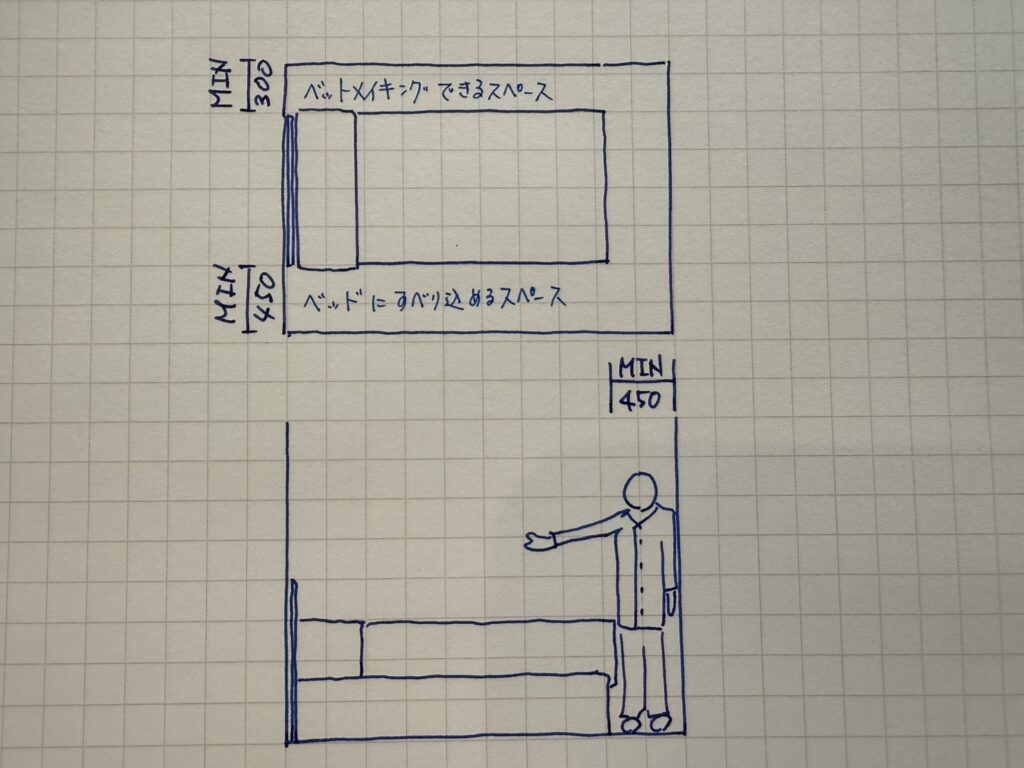 MIN
300
ベットメイキングできるスペース
MIN
450
ベッドにすべり込めるスペース
MIN
450